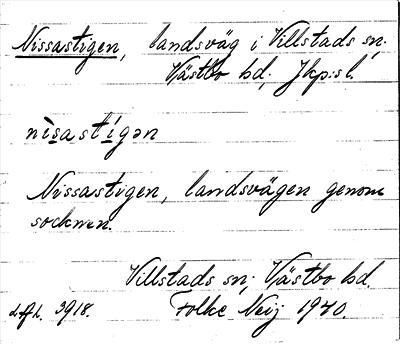 Nissastigen, landsväg i Villstads sn.
Västbo hd, Jkp:s l.
nìsastígən
Nissastigen, landsvägen genom
socknen.
Villstads sn; Västbo hd.
3918. Folke Neij 1940.